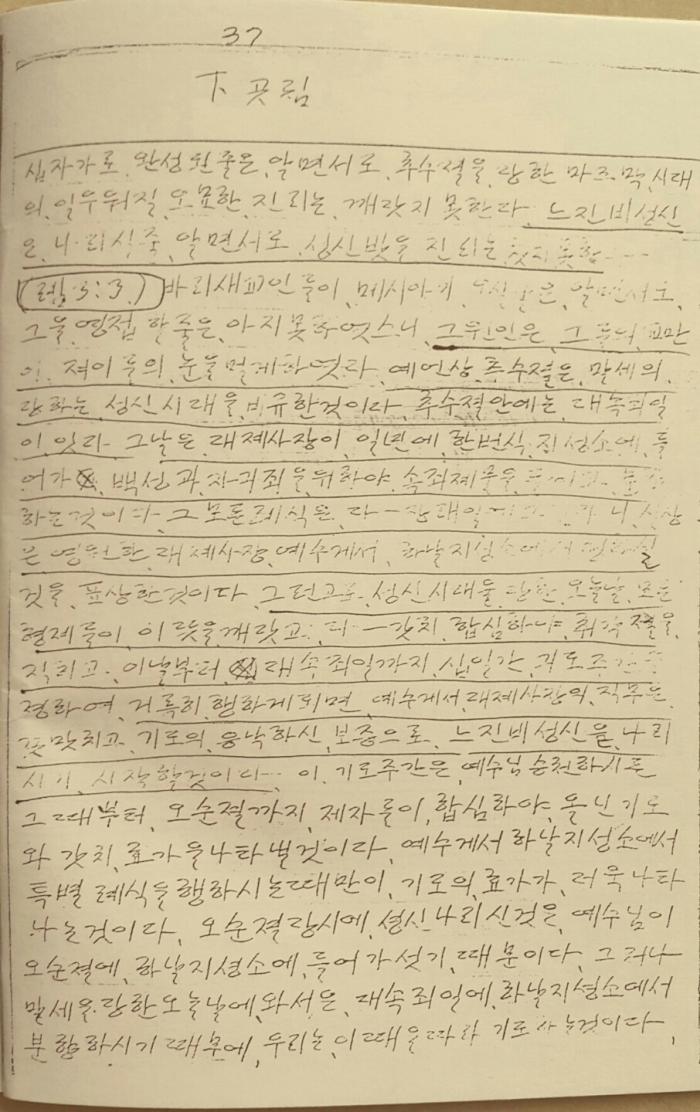 37
下 곳림
십자가로, 완성된줄은, 알면서로, 추수절을, 당한 마즈막, 시대
의, 일우워질, 오묘한, 진리는, 깨닷지 못한다, 느진비성신
은, 나리시줄, 알면서도, 성신밧을 진리는
(렘,3:3,) 바리새교인들이, 메시아가, 알면서도,
그을, 영접할줄은, 아지못하엿스니, 그원인은, 그들의, 교만
이, 저이들의, 눈을멀게하엿다, 예언상, 추수절은, 말세의,
당하는, 성신시대을, 비규한것이다, 추수절안에는, 대속죄일
이, 잇다, 그날은, 대제사장이, 일년에, 한번식, 지성소에, 들
어가, 백성과, 자긔죄을, 위하야, 속죄제물을
하는것이다, 그모든례식은, 다
은, 영원한, 대제사장, 예수게서, 하날지성소에서
것을, 표상한것이다, 그런고로, 성신시대을, 당한, 오늘날, 모든
형제들이, 이뜻을깨닷고, 다一갓치, 합심하야, 취각절을,
직히고, 이날부터, 대속죄일까지, 십일간, 긔도주간을
정하여, 거룩히, 행하게되면, 예수게서, 대제사장의, 직무을,
끗맛치고, 기로의, 응낙하신, 보증으로, 느진비성신을, 나리
시기, 시작할것이다… 이, 기로주간은, 예수님승천하시든
그때부터, 오순절까지, 제자들이, 합심하야, 올닌기도
와 갓치, 효가을나타낼것이다, 예수게서하날지성소에서
특별 례식을행하시는때만이, 기로의, 효가가, 더욱나타
나는것이다, 오순절당시에, 성신나리신것은, 예수님이
오순절에, 하날지성소에, 들어가섯기, 때문이다, 그러나
말세을, 당한오늘날에, 와서은, 대속죄일에, 하날지성소에서
분향하시기때문에, 우리는, 이때을따라 기로하는것이다,